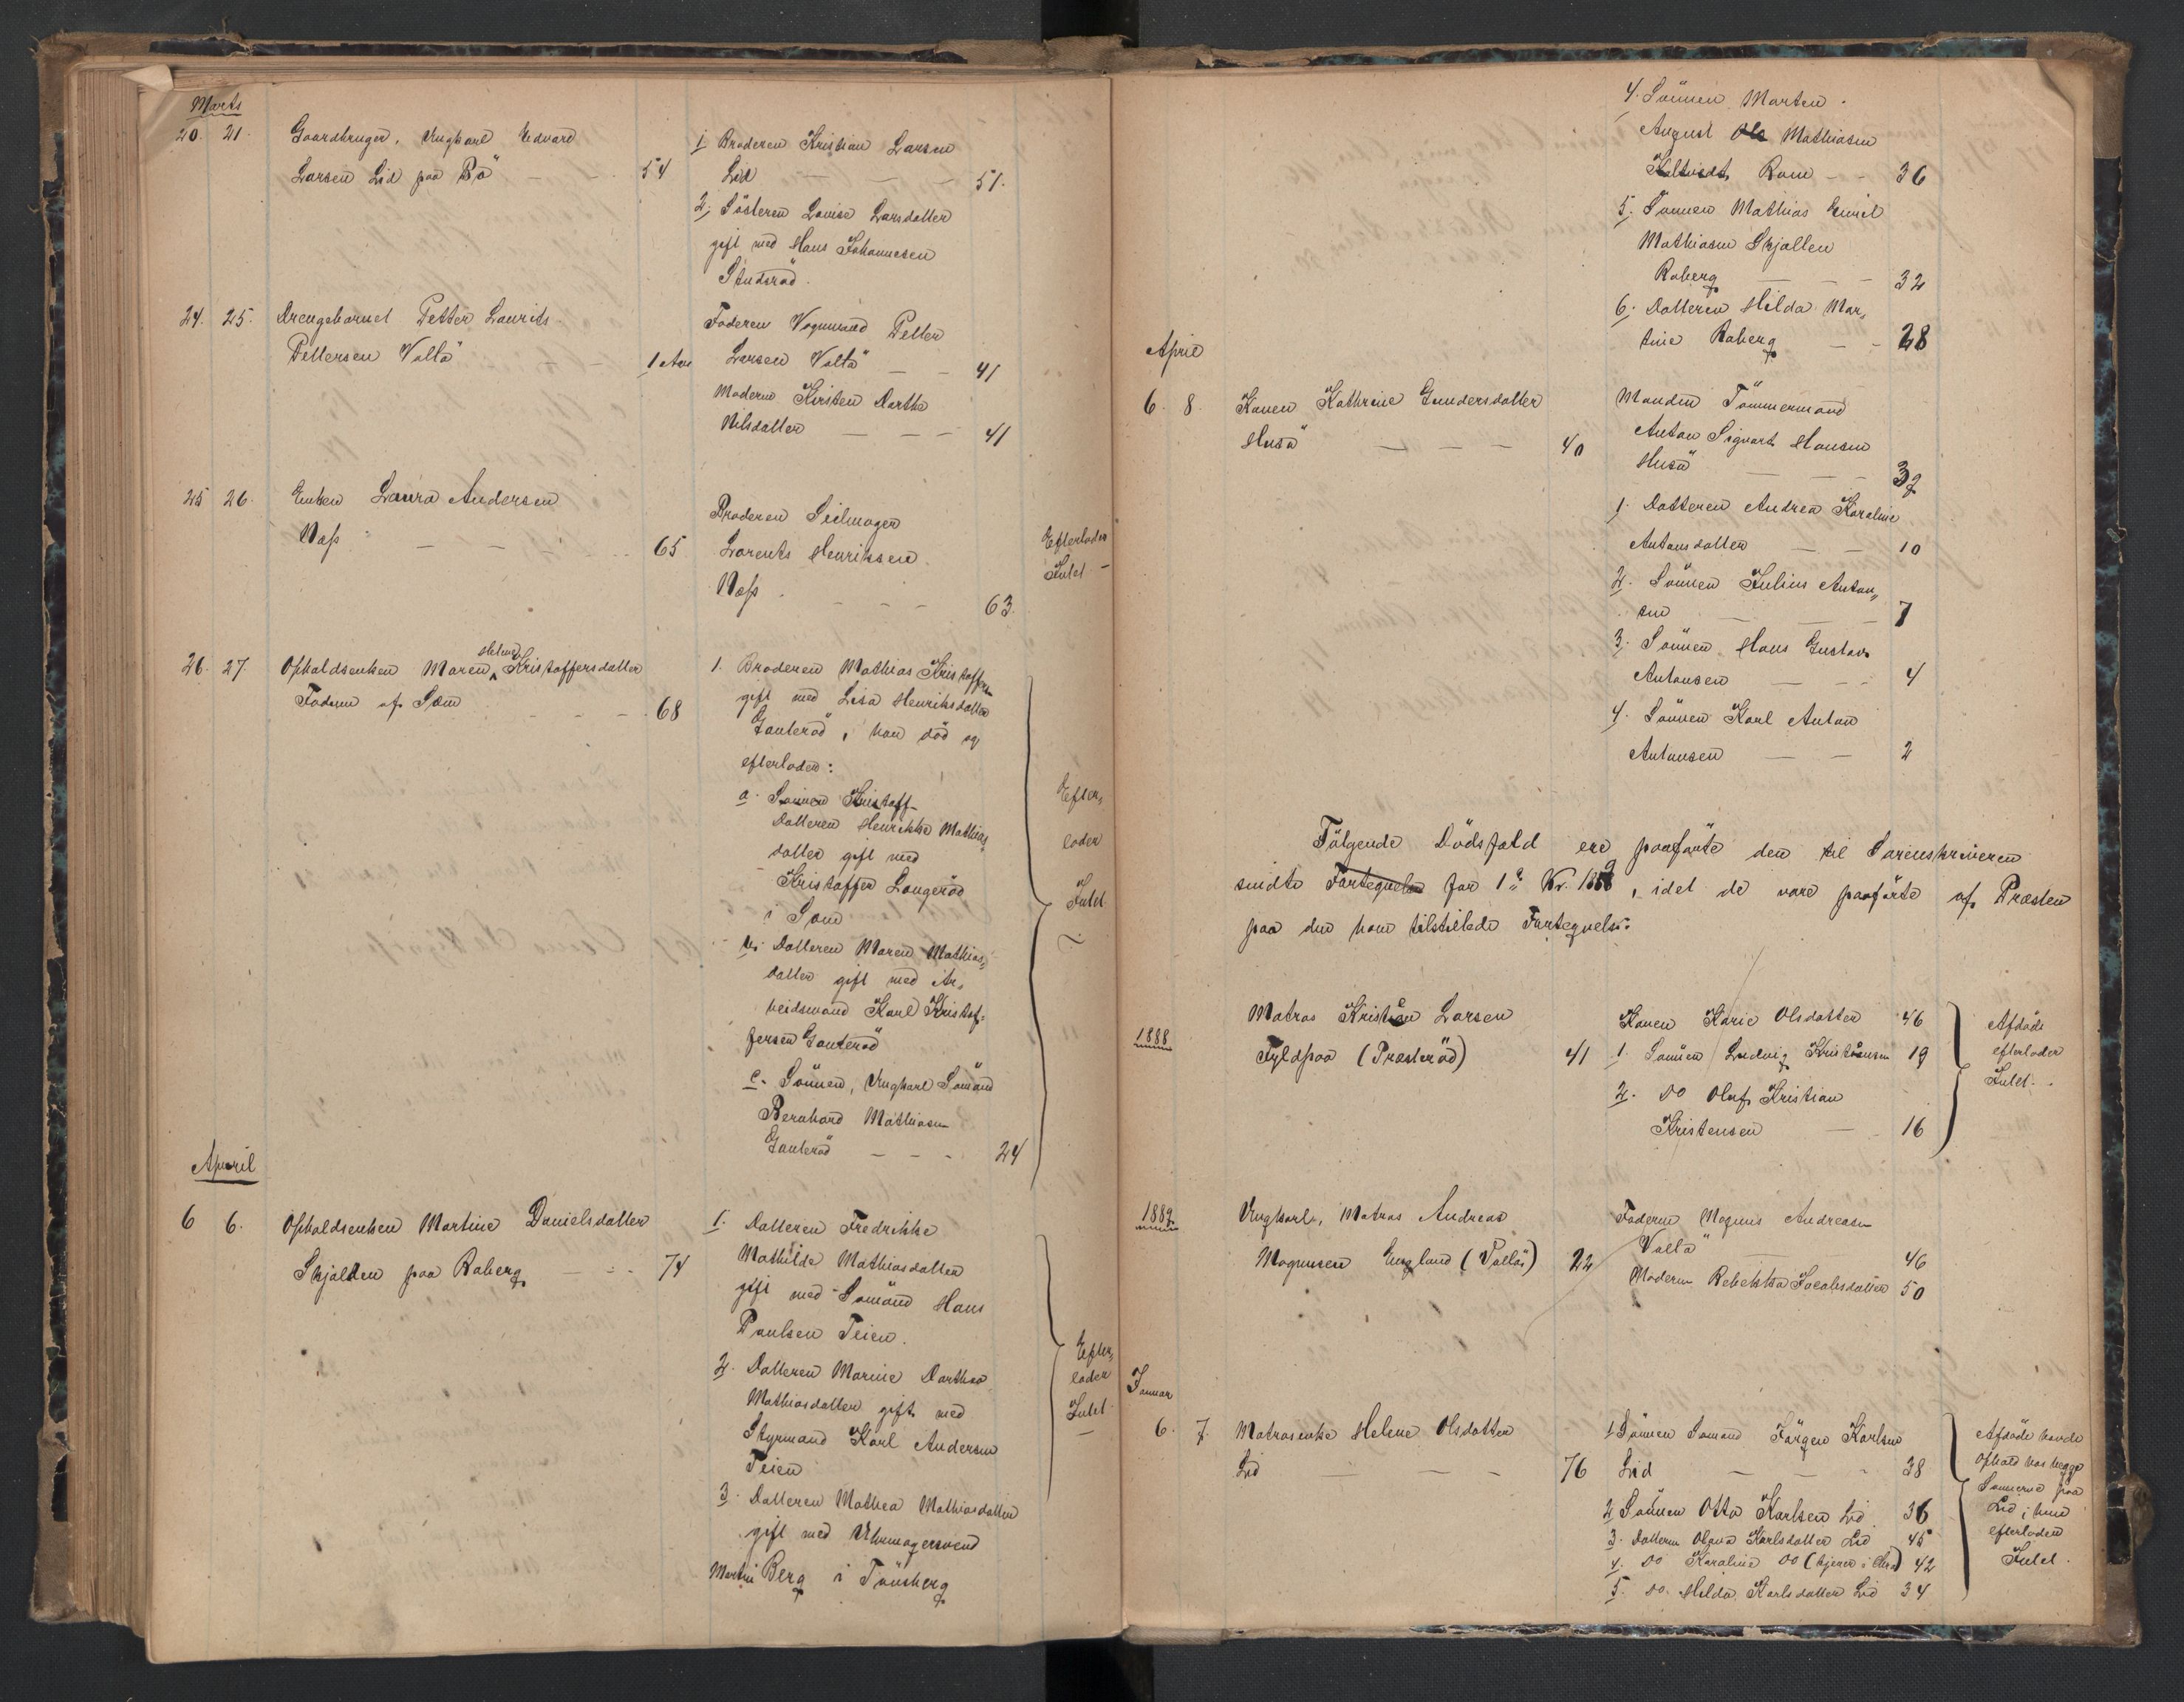 Marts
20. 21. Gaardbruger, Ungkarl Edvard
Larsen Lid paa Bö — — 54
1. Broderen Kristian Larsen
Lid — — — 51.
2. Søsteren Lovise Larsdatter
gift med Hans Johannesen
Studsrød.
24. 25. Drengebarnet Petter Laurits
Pettersen Vallö 1 Aar
Faderen Vognmand Petter
Larsen Vallö — — 41
Moderen Kirsten Dorthe
Nilsdatter — — — 41
25 26. Enken Laura Andersen
Næss — — — 65
Broderen Seilmager
Lorents Henriksen
Næss. — — — 63.
Efterlader
Intet —
26. 27. Opholdsenken Maren Helene Kristoffersdatter
Foderen af Sem — — 68
1. Broderen Mathias Kristoffersen
gift med Lisa Henriksdatter
Gauterød, han død og
efterlader:
a. Sønnen Kristoff-
Datteren Henrikke Mathias-
datter gift med
Kristoffer Longerød
i Sem
b. Datteren Maren Mathias„
datter gift med Ar„
beidsmand Karl Kristof=
fersen Gauterød
c. Sønnen, Ungkarl Sømand
Bernhard Mathiasen
Gauterød — — — 24
Efter„
lader
Intet
—
April
6 6. Opholdsenken Martine Danielsdatter
Skjalden paa Roberg — — 74
1. Datteren Fredrikke
Mathilde Mathiasdatter
gift med Sømand Hans
Paulsen Teien.
2. Datteren Marine Dorthea
Mathiasdatter gift med
Styrmand Karl Andersen
Teien
3. Datteren Mathea Mathiasdatter
gift med Uhrmagersvend
Martin Berg i Tønsberg
Efter„
lader
Intet
—
4. Sønnen Marten
August Ole Mathiasen
Rom — — 36
5. Sønnen Mathias Emil
Mathiasen Skjallen
Roberg — — — 32
6. Datteren Hilda Mar„
tine Roberg — — 28
April
6. 8. Konen Kathrine Gundersdatter
Husö — — — 40
Manden Tømmermand
Anton Sigvart Hansen
Husö — — 37
1. Datteren Andrea Karoline
Antonsdatter — — 10
2. Sønnen Julius Anton„
sen — — — 7
3. Sønnen Hans Gustav
Antonsen — — 4
4. Sønnen Karl Anton
Antonsen — — 2
Følgende Dødsfald ere paaførte den til Sorenskriveren
sendte Fortegnelse for 1ste Kv. 1889, idet de vare paaførte af Præsten
paa den ham tilstillede Fortegnelse.
1888 Matros Kristen Larsen
Fyldpaa (Presterød) 41
Konen Karie Olsdatter 46
1. Sønnen Ludvig Kristensen 19
2. Do Oluf Kristian
Kristensen — 16
Afdøde
efterlader
Intet.
1889 Ungkarl, Matros Andreas
Magnusen England (Vallö) 22
Faderen Magnus Andreasen
Vallö — 46
Moderen Rebekka Jacobsdatter 50
Januar
6. 7. Matrosenke Helene Olsdatter
Lid — — 76
1 Sønnen Sømand Jørgen Karlsen
Lid — — — 38
2 Sønnen Otto Karlsen Lid 36
3. Datteren Olava Karlsdatter Lid 45
4. Do Karoline Do (tjener i Chr.) 42
5. Do. Hilda Karlsdatter Lid 34
Afdøde havde
Ophold hos begge
Sønnerne paa
Lid; hun
efterlader
Intet.